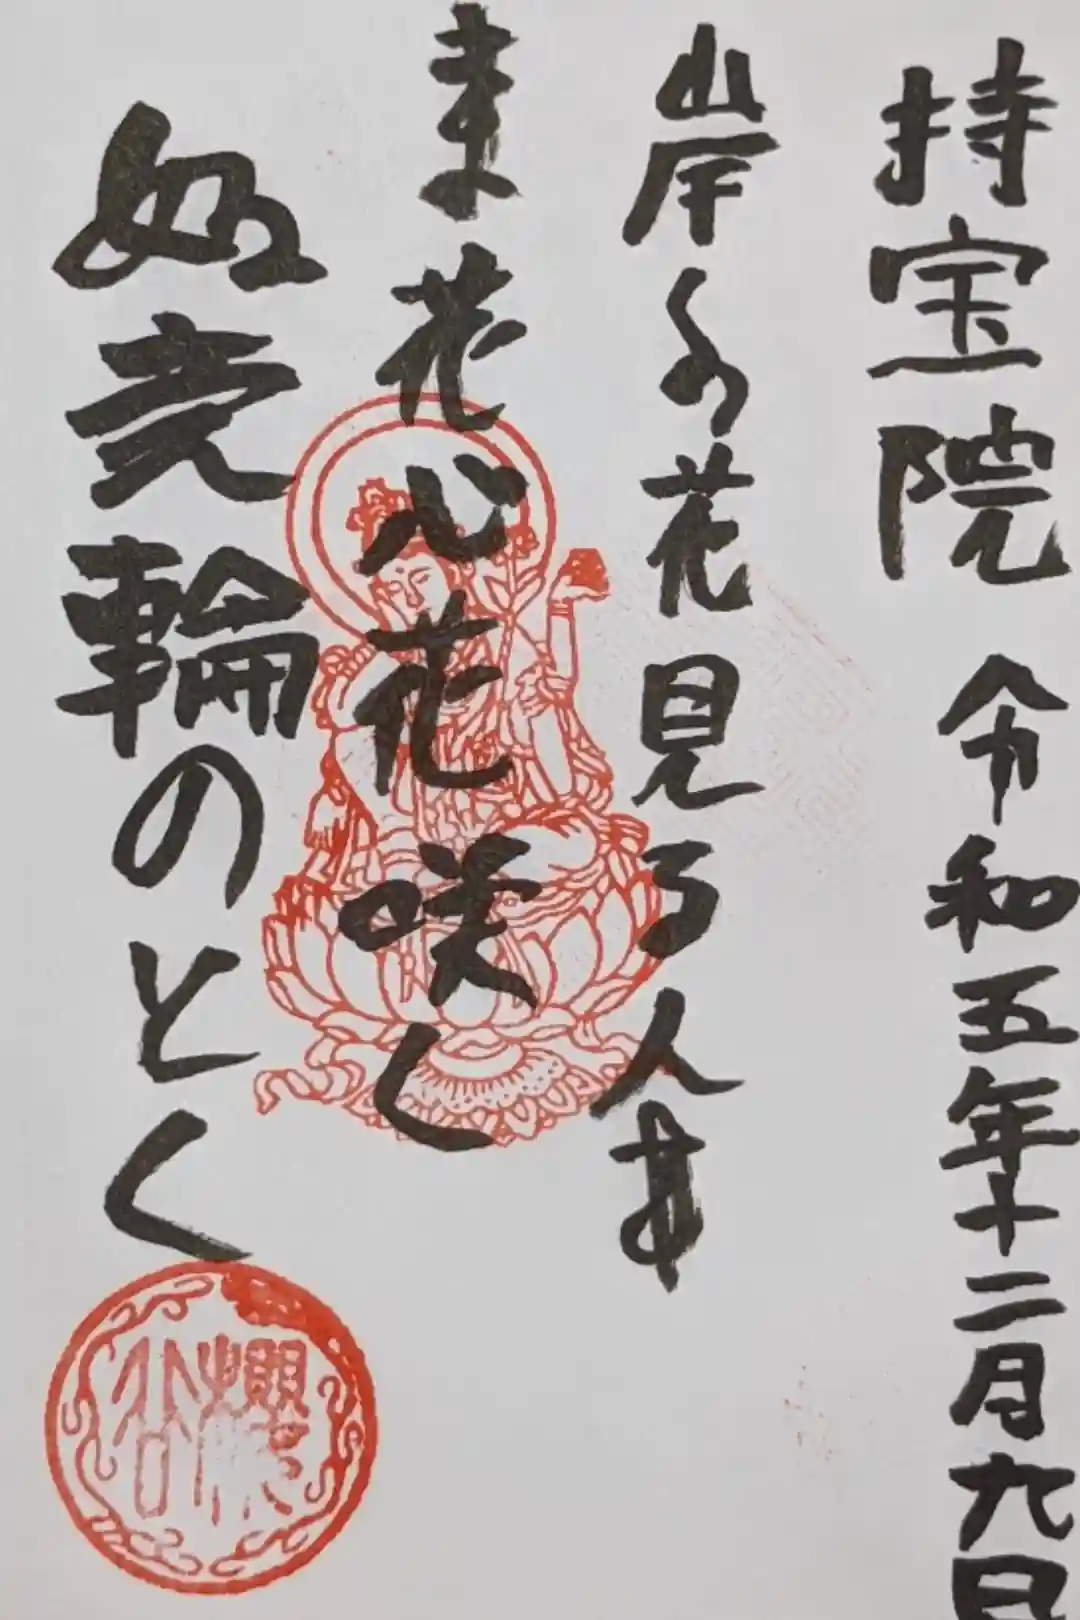 持宝院 令和五年十二月九日
岸の花見る人
花心花咲く
如意輪のとく